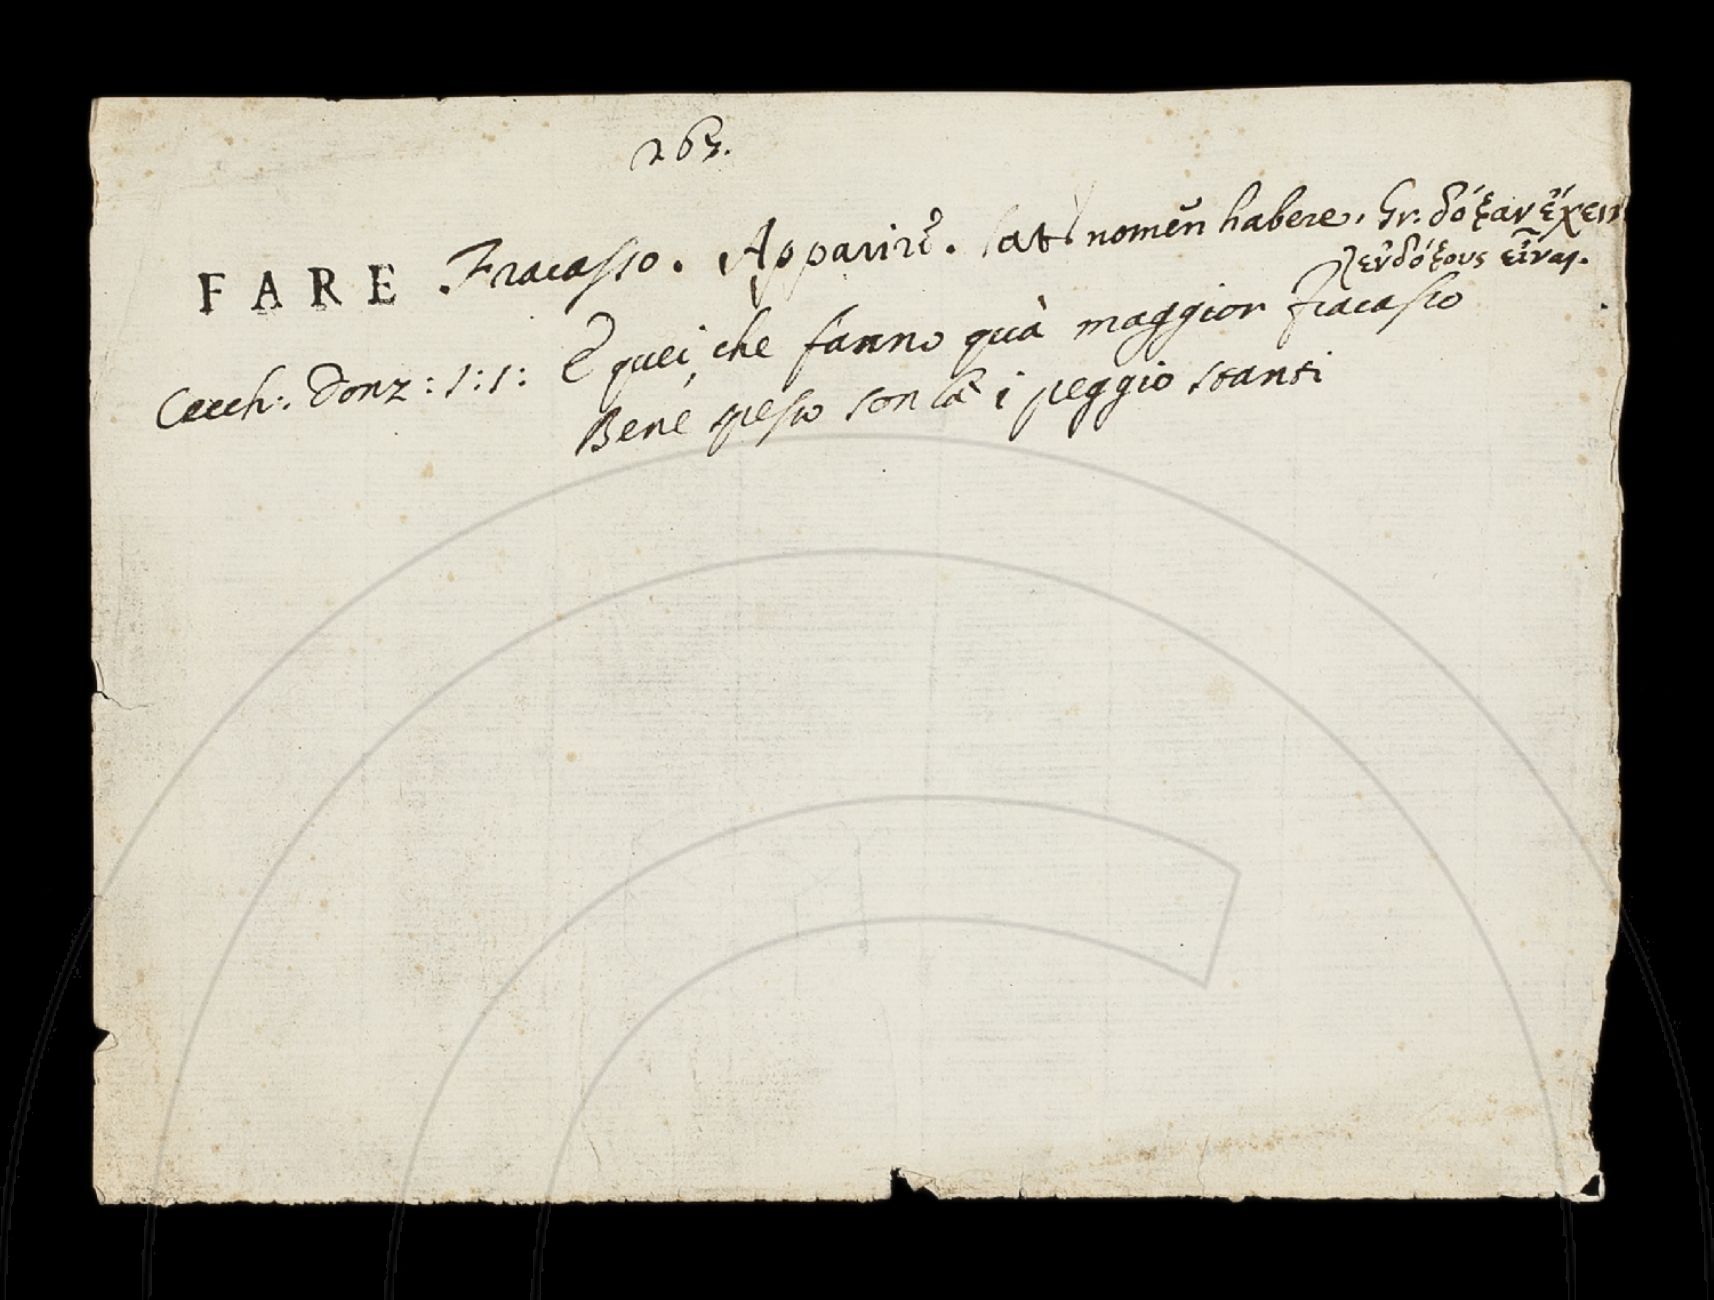 265.
FARE. Fracasso. Apparire. lat. nomen habere. Gr. δόξαν ἔχειν
ἐνδόξους εἶναι.
Cecch. Donz: 1:1: E quei, che fanno quà maggior fracasso
Bene spesso son là i peggio stanti